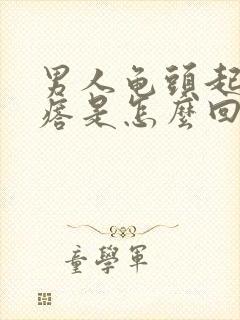 男人龟頭起
痞是怎麼回
童學軍